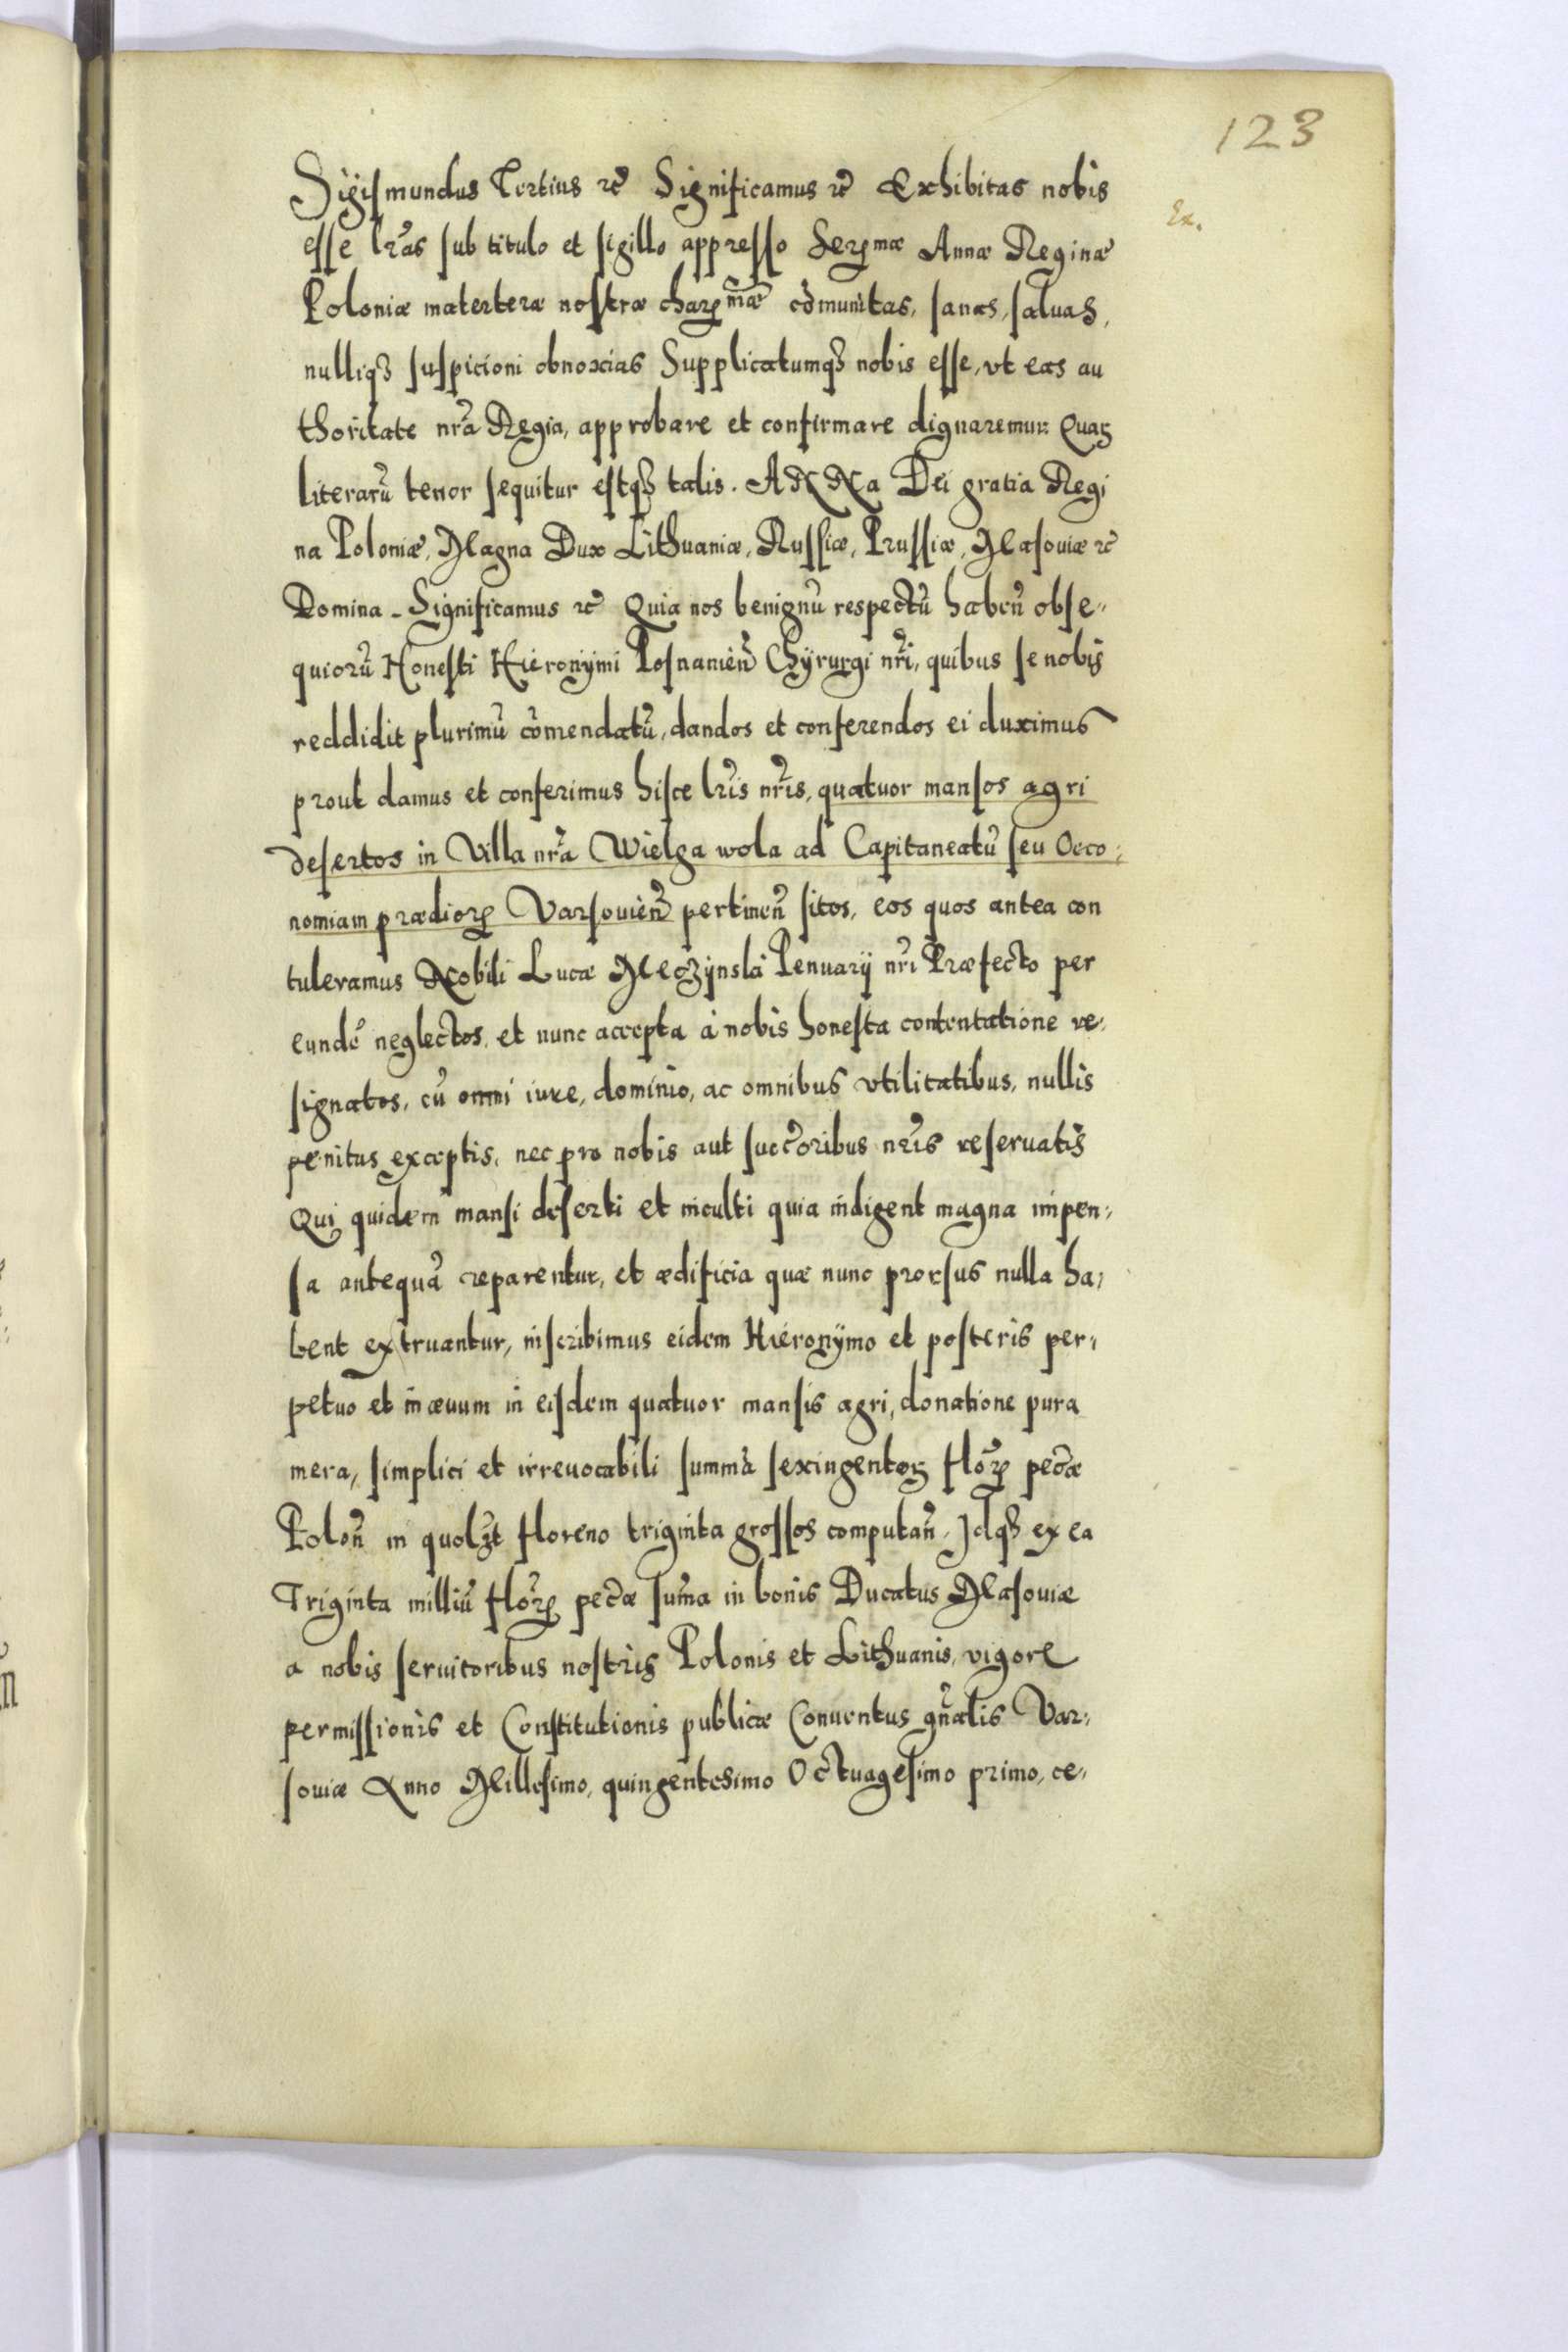 123
Sigismundus Tertius ꝛc̃ Significamus ꝛc̃ Exhibitas nobis
Ex.
esse lr̃as sub titulo et sigillo appresso Serꝫmæ Annæ Reginæ
Poloniæ materteræ nostræ charꝫmæ cõmunitas, sanas, saluas,
nulliqꝫ suspicioni obnoxias Supplicatumqꝫ nobis esse, vt eas au
thoritate nr̃a Regia, approbare et confirmare dignaremur: Quaꝝ
literarũ tenor sequitur estqꝫ talis. ANNa Dei gratia Regi
na Poloniæ, Magna Dux Lithuaniæ, Russiæ, Prussiæ, Masouiæ ꝛc̃
Domina - Significamus ꝛc̃ Quia nos benignũ respectũ habeñ obse„
quiorũ Honesti Hieronÿmi Posnanieñ Chÿrurgi nr̃i, quibus se nobis
reddidit plurimũ cõmendatũ, dandos et conferendos ei duximus
prout damus et conferimus hisce lr̃is nr̃is, quatuor mansos agri
desertos in Villa nr̃a Wielga wola ad Capitaneatũ seu Oeco„
nomiam prædioꝝ Varsouieñ pertineñ sitos, eos quos antea con
tuleramus Nobili Lucæ Penuarÿ nr̃i Præfecto per
eundẽ neglectos, et nunc accepta à nobis honesta contentatione re„
signatos, cũ omni iure, dominio, ac omnibus vtilitatibus, nullis
penitus exceptis, nec pro nobis aut succ̃oribus nr̃is reseruatis
Qui quidem mansi deserti et inculti quia indigent magna impen„
sa antequã reparentur, et ædificia quæ nunc prorsus nulla ha„
bent extruantur, inscribimus eidem Hieronÿmo et posteris per„
petuo et in æuum in eisdem quatuor mansis agri, donatione pura
mera, simplici et irreuocabili summã sexingentoꝝ flor̃ꝝ pec̃æ
Poloñ in quolꝫt floreno triginta grossos computañ. Idqꝫ ex ea
Triginta milliũ flor̃ꝝ pec̃æ sum̃a in bonis Ducatus Masouiæ
a nobis seruitoribus nostris Polonis et Lithuanis, vigore
permissionis et Constitutionis publicæ Conuentus gñalis Var„
souiæ Anno Millesimo, quingentesimo Octuagesimo primo, ce„